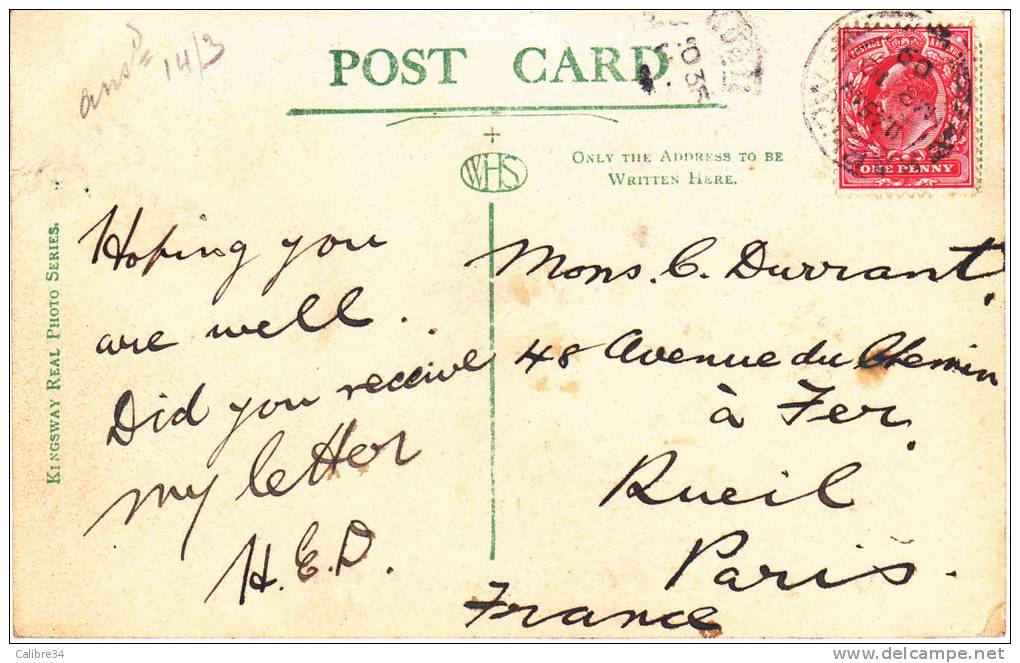 ans^d 14/3
POST CARD
WHS
ONLY THE ADDRESS TO BE
WRITTEN HERE.
POSTAGE
ONE PENNY
KINGSWAY REAL PHOTO SERIES.
Hoping you
are well.
Did you receive
my letter
H.E.D.
Mons. C. Durrant,
48 Avenue du Chemin
à Fer,
Rueil
Paris.
France
Calibre34
delcampe.net